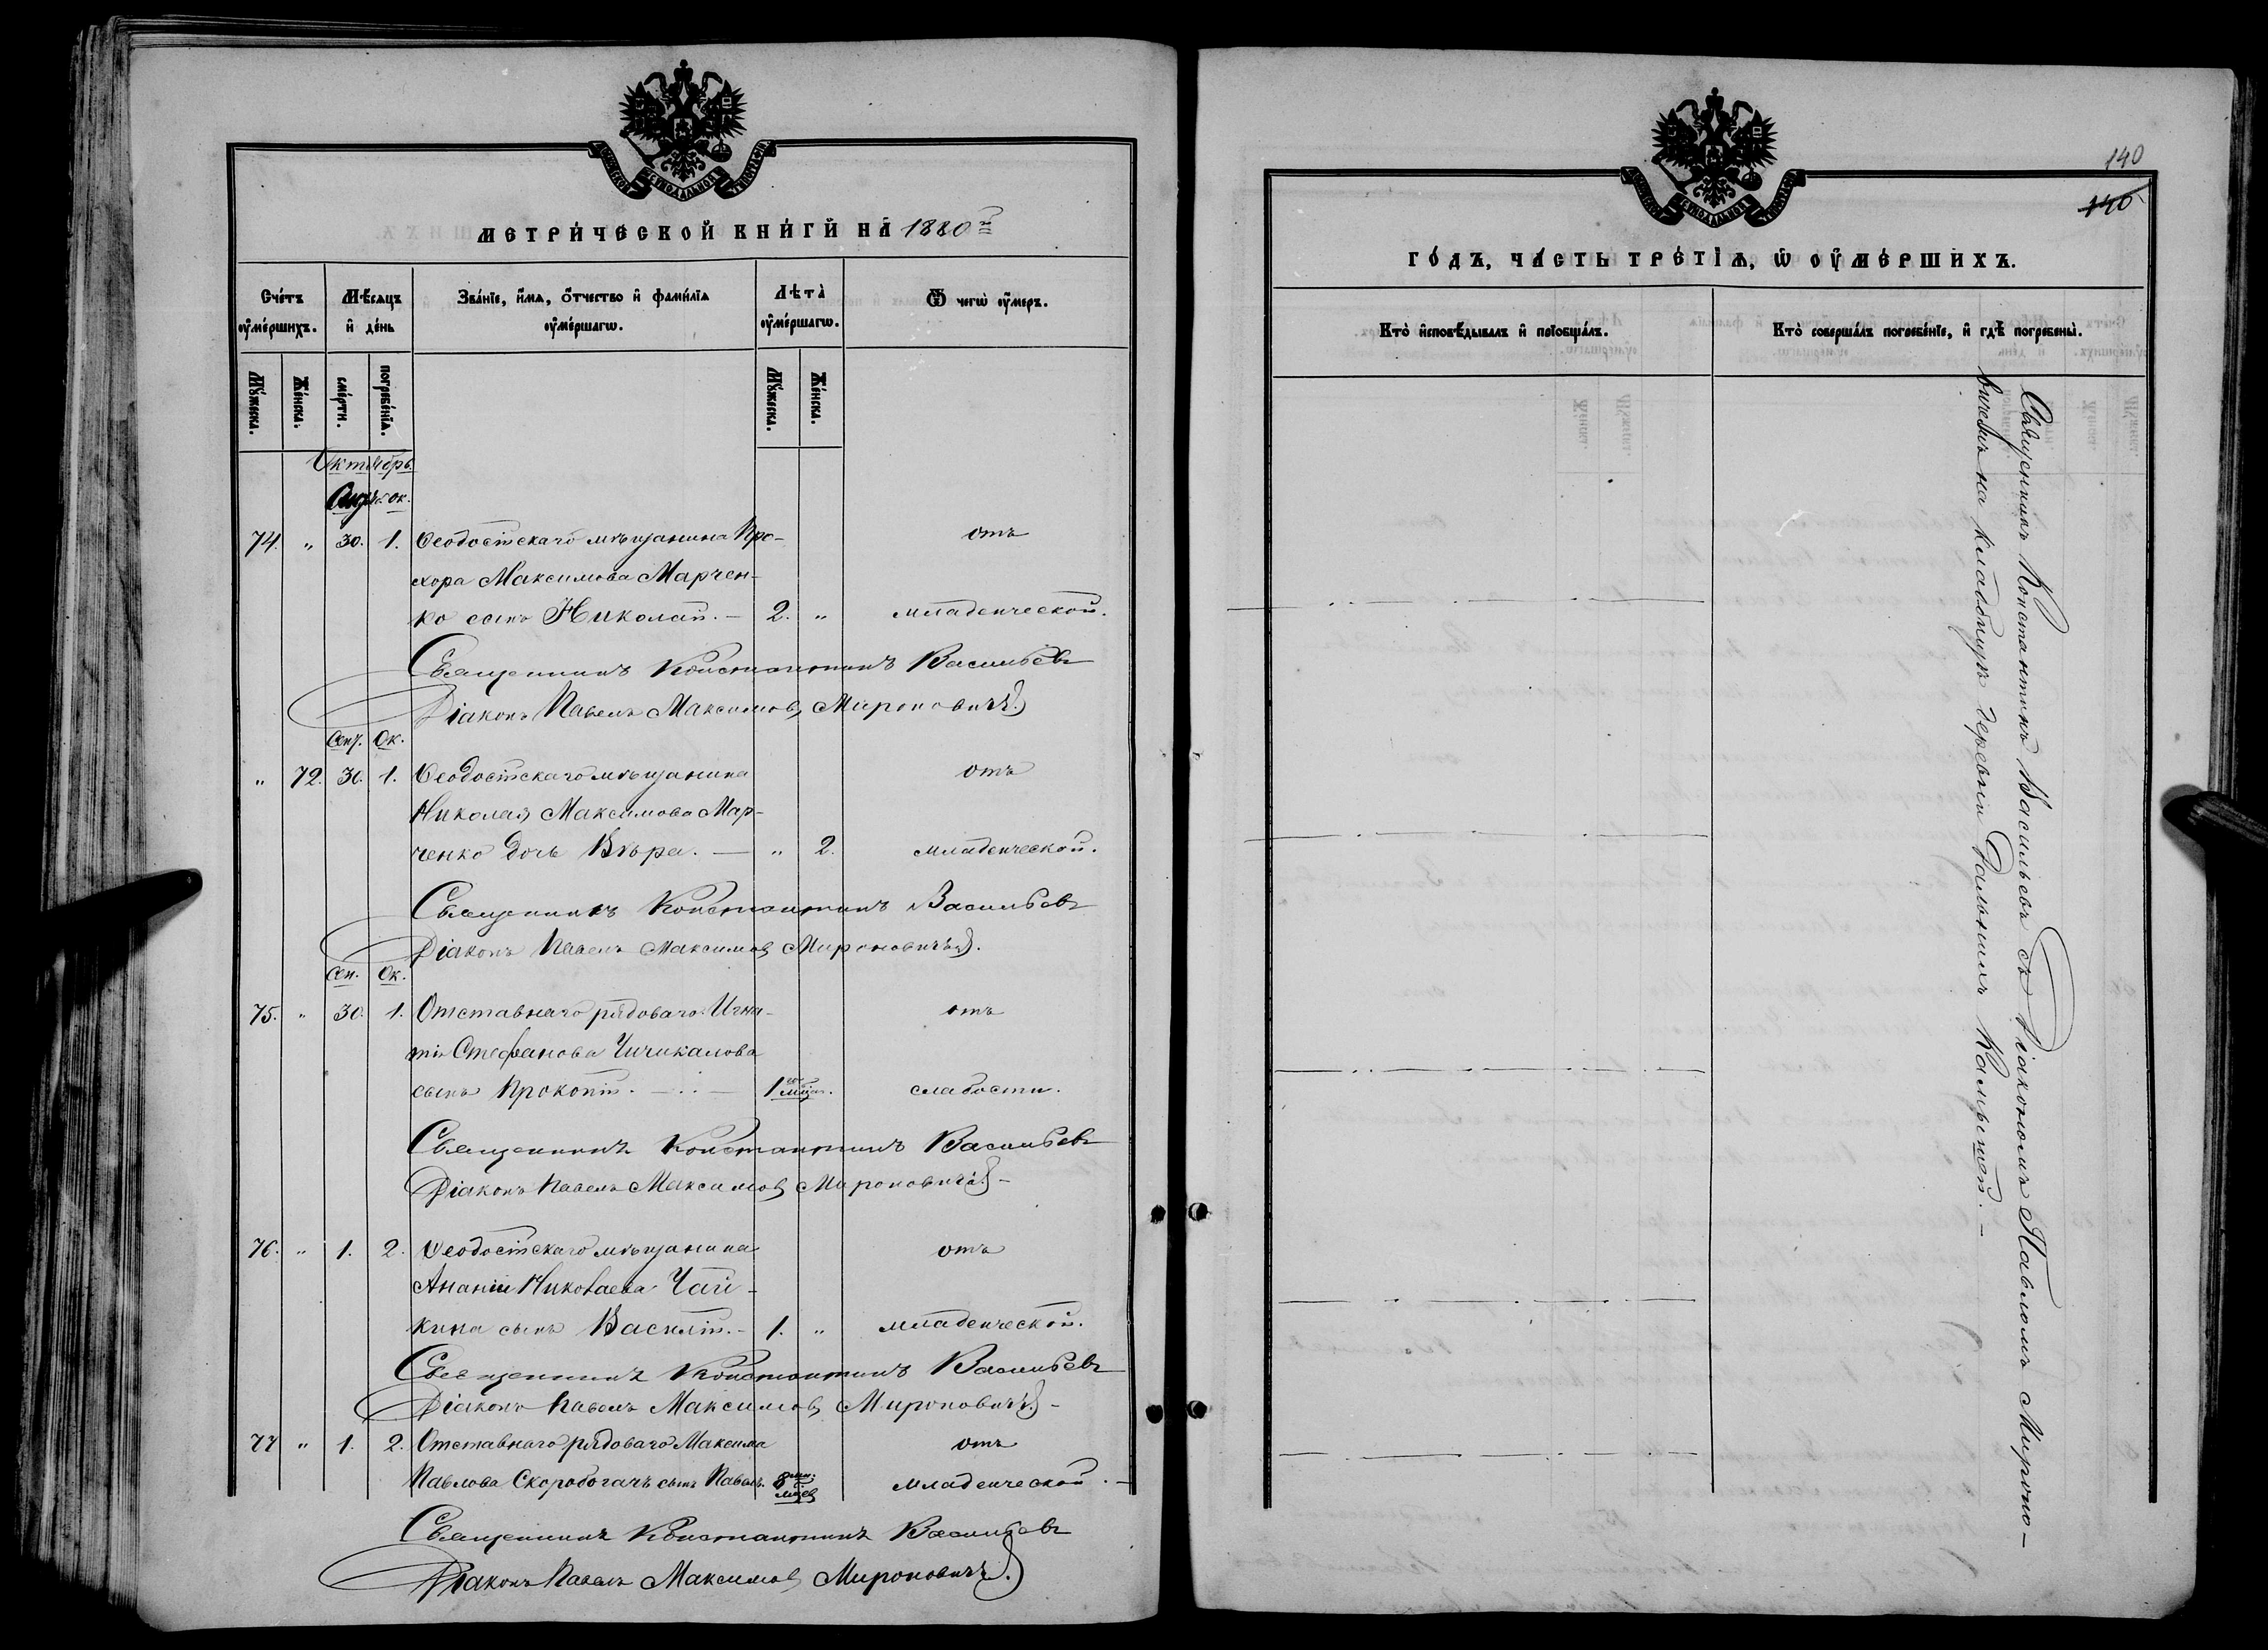 МЕТРИЧЕСКОЙ КНИГИ НА 1880й
Счетъ умершихъ.
Мѣсяцъ и день
Званіе, имя, отчество и фамилія умершагω.
Лѣта умершагω.
Ѿ чегω умеръ.
Мужеска.
Женска.
смерти.
погребенія.
Мужеска.
Женска.
Октябрь
Ок.
74. " 30. 1. Ѳеодосійскаго мѣщанина Про- отъ
хора Максимова Марчен-
ко сынъ Николай. — 2. " младенческой.
Священникъ Константинъ Васильевъ
Діаконъ Павелъ Максимовъ Мироновичъ.
Сен. Ок.
" 72. 30. 1. Ѳеодосійскаго мѣщанина отъ
Николая Максимова Мар-
ченко дочь Вѣра. — " 2. младенческой.
Священникъ Константинъ Васильевъ
Діаконъ Павелъ Максимовъ Мироновичъ.
Сен. Ок.
75. " 30. 1. Отставнаго рядоваго Игна- отъ
тія Стефанова Чичикалова
сынъ Прокопій. — 1 слабости.
Священникъ Константинъ Васильевъ
Діаконъ Павелъ Максимовъ Мироновичъ. —
76. " 1. 2. Ѳеодосійскаго мѣщанина отъ
Ананія Николаева Чай-
кина сынъ Василій. — 1. " младенческой.
Священникъ Константинъ Васильевъ
Діаконъ Павелъ Максимовъ Мироновичъ. —
77 " 1. 2. Отставнаго рядоваго Максима отъ
Павлова Скоробогачъ сынъ Павелъ. 8 младенческой. —
Священникъ Константинъ Васильевъ
Діаконъ Павелъ Максимовъ Мироновичъ.
140
140
ГОДЪ, ЧАСТЬ ТРЕТІѦ, Ѡ УМЕРШИХЪ.
Кто исповѣдывалъ и пріобщалъ.
Кто совершалъ погребеніе, и гдѣ погребены.
Священникъ Константинъ Васильевъ съ Діакономъ Павломъ Мироно-
вичемъ на кладбищѣ деревни Дальнихъ Камышей. —